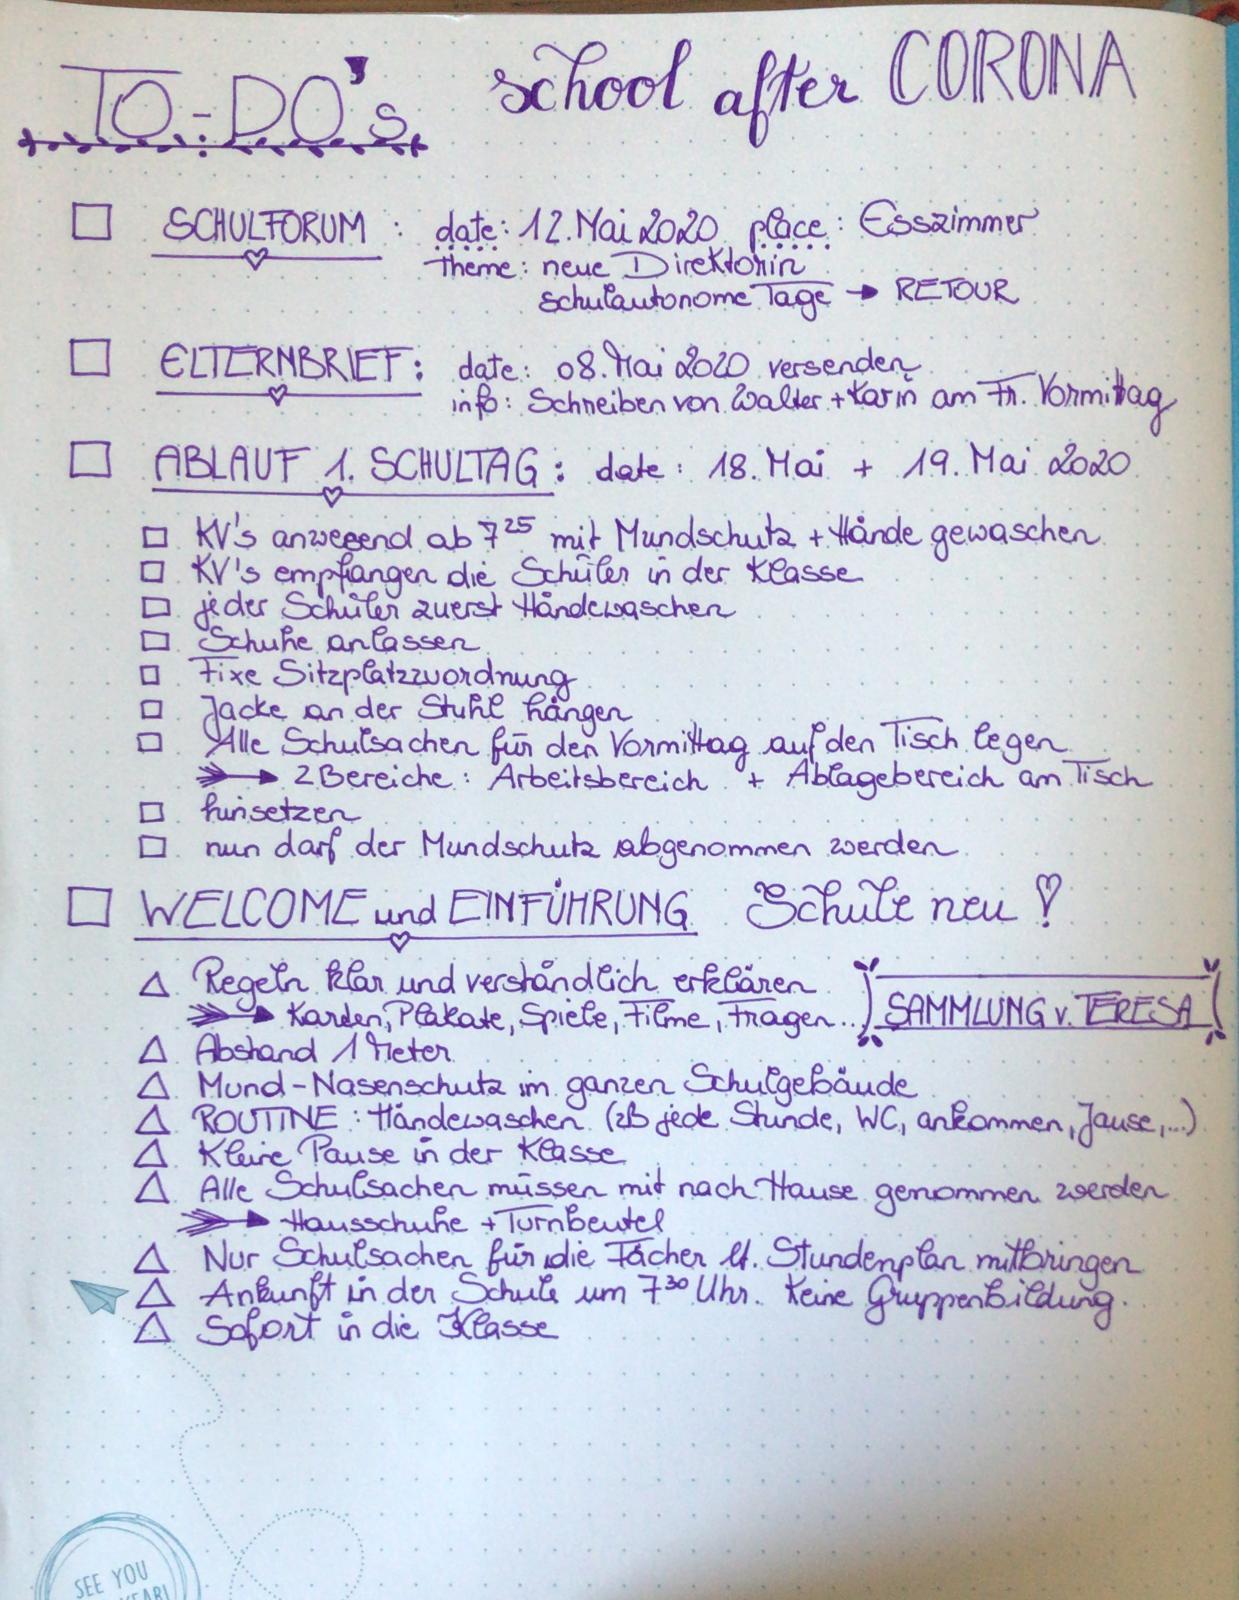 TO-DO's school after CORONA
SCHULFORUM : date: 12. Mai 2020 place: Esszimmer
theme: neue Direktorin
schulautonome Tage → RETOUR
ELTERNBRIEF: date: 08. Mai 2020 versenden
info: Schreiben von Walter + Karin am Fr. Vormittag
ABLAUF 1. SCHULTAG: date: 18. Mai + 19. Mai 2020
KV's anwesend ab 7 25 mit Mundschutz + Hände gewaschen
KV's empfangen die Schüler in der Klasse
jeder Schüler zuerst Händewaschen
Schuhe anlassen
Fixe Sitzplatzzuordnung
Jacke an der Stuhl hängen
Alle Schulsachen für den Vormittag auf den Tisch legen
2 Bereiche: Arbeitsbereich + Ablagebereich am Tisch
hinsetzen
nun darf der Mundschutz abgenommen werden
WELCOME und EINFÜHRUNG Schule neu !
Regeln klar und verständlich erklären
Karten, Plakate, Spiele, Filme, Fragen... SAMMLUNG v. TERESA
Abstand 1 Meter
Mund-Nasenschutz im ganzen Schulgebäude
ROUTINE: Händewaschen (zB jede Stunde, WC, ankommen, Jause,...)
Kleine Pause in der Klasse
Alle Schulsachen müssen mit nach Hause genommen werden
Hausschuhe + Turnbeutel
Nur Schulsachen für die Fächer lt. Stundenplan mitbringen
Ankunft in der Schule um 7 30 Uhr. Keine Gruppenbildung.
Sofort in die Klasse
SEE YOU